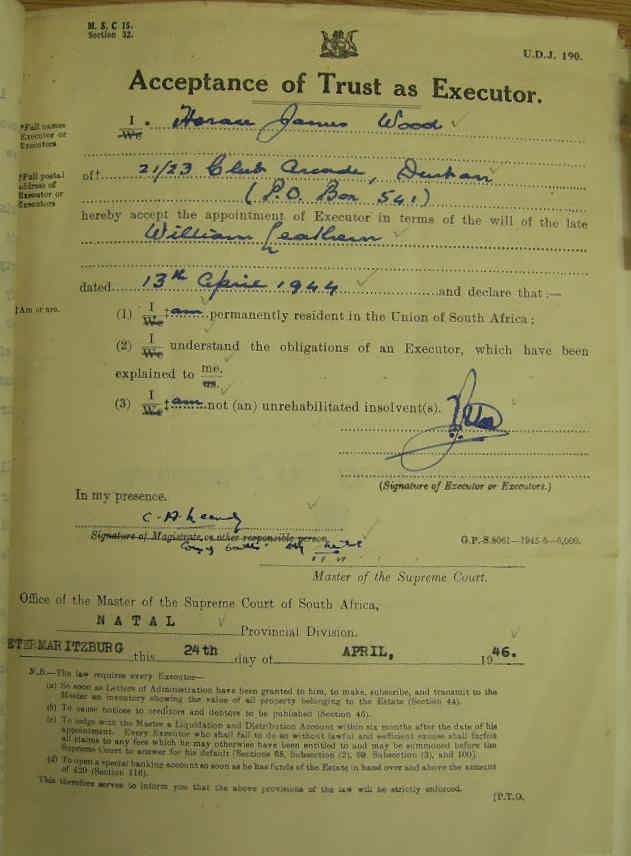 M. S. C 15.
Section 32.
U.D.J. 190.
Acceptance of Trust as Executor.
*Full names
Executor or
Executors
I
We
Horace James Wood
†Full postal
address of
Executor or
Executors
of† 21/23 Club Arcade, Durban
(P.O. Box 541)
hereby accept the appointment of Executor in terms of the will of the late
William Leathern
dated 13th April 1944 and declare that :—
‡Am or are.
(1) I
We ‡am permanently resident in the Union of South Africa ;
(2) I
We understand the obligations of an Executor, which have been
explained to me.
us.
(3) I
We ‡am not (an) unrehabilitated insolvent(s).
(Signature of Executor or Executors.)
In my presence.
Signature of Magistrate, or other responsible person
G.P.-S.8061—1945-6—6,000.
Master of the Supreme Court.
Office of the Master of the Supreme Court of South Africa,
NATAL Provincial Division.
ETERMARITZBURG this 24th day of APRIL, 1946.
N.B.—The law requires every Executor—
(a) So soon as Letters of Administration have been granted to him, to make, subscribe, and transmit to the
Master an inventory showing the value of all property belonging to the Estate (Section 44).
(b) To cause notices to creditors and debtors to be published (Section 46).
(c) To lodge with the Master a Liquidation and Distribution Account within six months after the date of his
appointment. Every Executor who shall fail to do so without lawful and sufficient excuse shall forfeit
all claims to any fees which he may otherwise have been entitled to and may be summoned before the
Supreme Court to answer for his default (Sections 68, Subsection (2), 99, Subsection (3), and 100).
(d) To open a special banking account so soon as he has funds of the Estate in hand over and above the amount
of £20 (Section 116).
This therefore serves to inform you that the above provisions of the law will be strictly enforced.
[P.T.O.